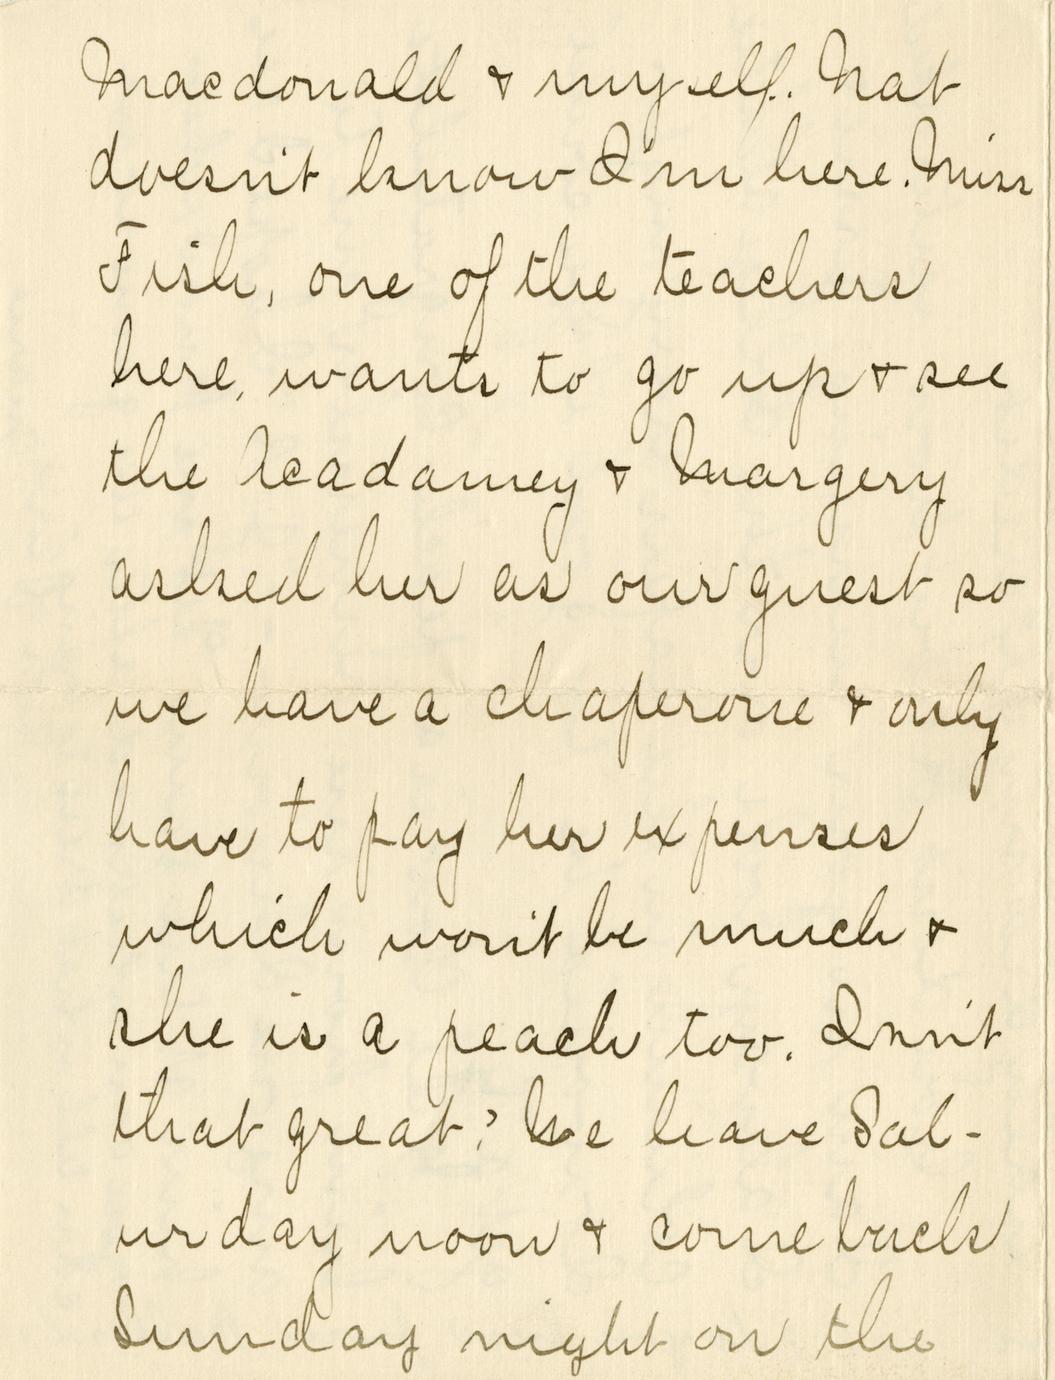 Macdonald & myself. Nat
doesn't know I'm here. Miss
Fish, one of the teachers
here, wants to go up & see
the Acadamey & Margery
asked her as our guest so
we have a chaperone & only
have to pay her expenses
which won't be much &
she is a peach too. Isn't
that great? We leave Sat-
urday noon & come back
Sunday night on the